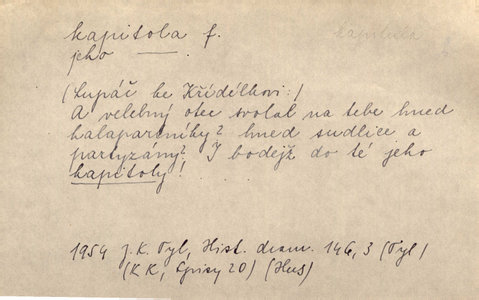 kapitola f. kapitula
jeho —.
(Lupáč ke Křídélkovi:)
A velebný otec svolal na tebe hned
halapartníky? hned sudlice a
partyzány? I bodejž do té jeho
kapitoly!
1954 J. K. Tyl, Hist. dram. 146, 3 (Tyl)
(KK, Spisy 20) (Hus)